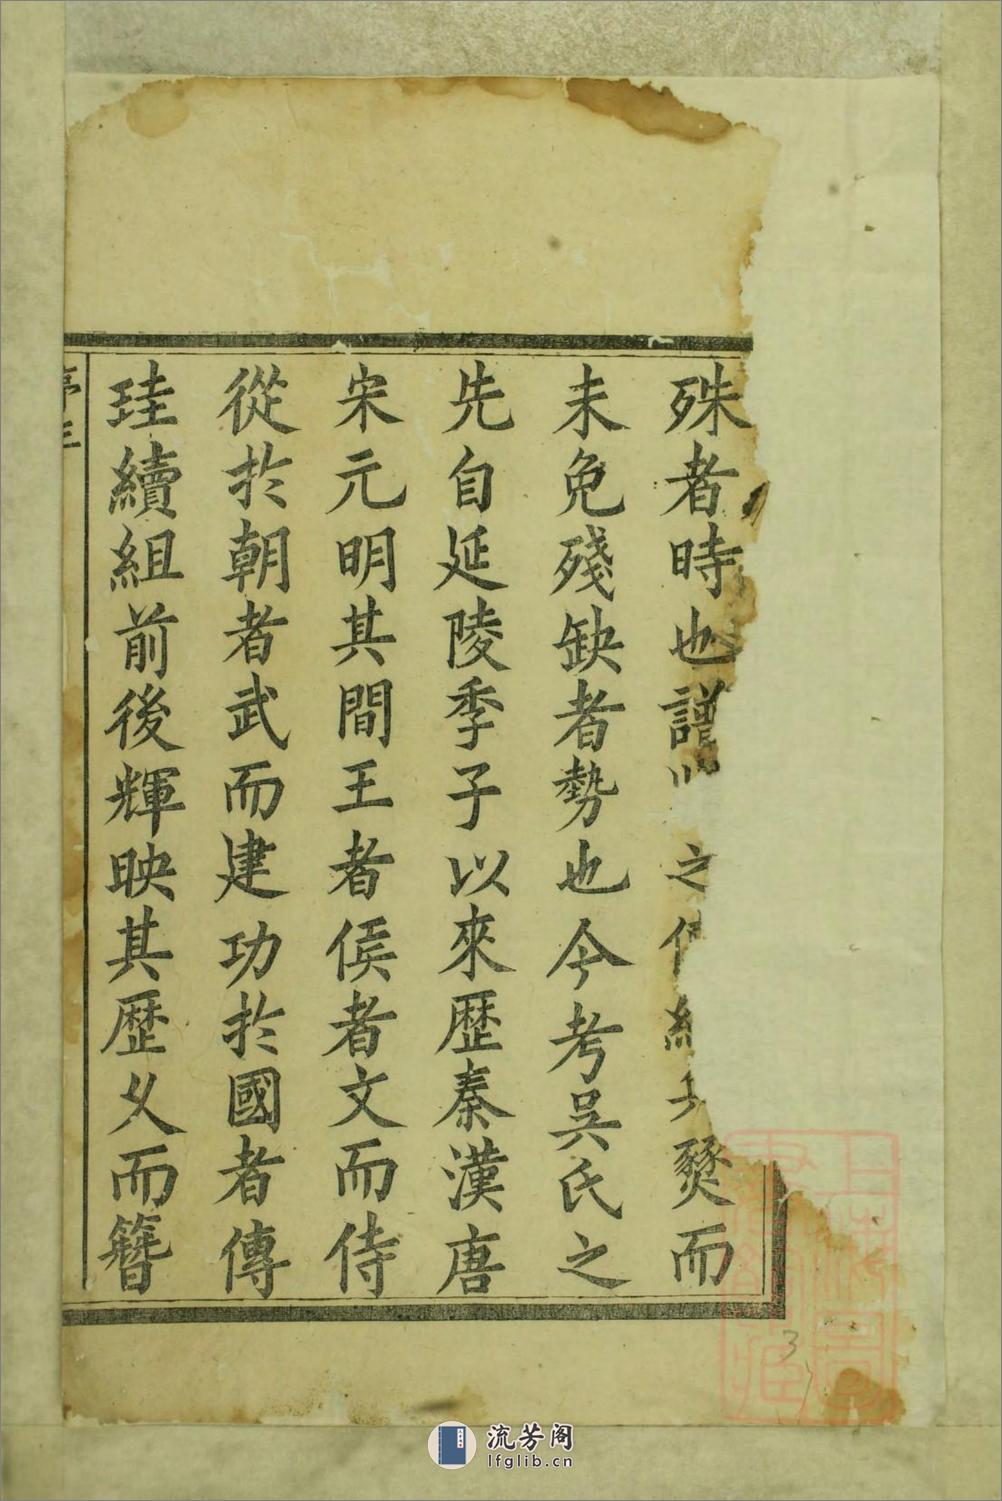 殊者時也譜之燹而
未免殘缺者勢也今考吳氏之
先自延陵季子以來歷秦漢唐
宋元明其間王者侯者文而侍
從扵朝者武而建功扵國者傳
珪續組前後輝映其歷久而簪
序三
3
流芳阁
lfglib.cn